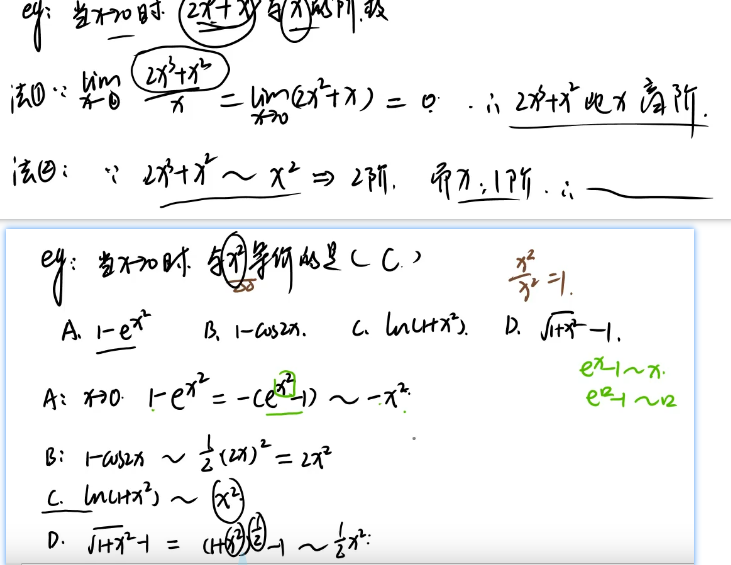 eg: 当x→0时 (2x³+x²) 与 x 的阶数
法①: ∵ lim x→0 (2x³+x²)/x = lim x→0 (2x²+x) = 0. ∴ 2x³+x² 比 x 高阶.
法②: ∵ 2x³+x² ~ x² ⇒ 2阶. 而x:1阶. ∴
eg: 当x→0时 与x²等价的是( C. )
x²/x² =1.
A. 1-e^x² B. 1-cos2x. C. ln(1+x²). D. √1+x² -1.
e^x-1~x.
A: x→0. 1-e^x² = -(e^x²-1) ~ -x².
e^□-1~□
B: 1-cos2x ~ 1/2(2x)² = 2x²
C. ln(1+x²) ~ x².
D. √1+x² -1 = (1+x²)^1/2 -1 ~ 1/2x².